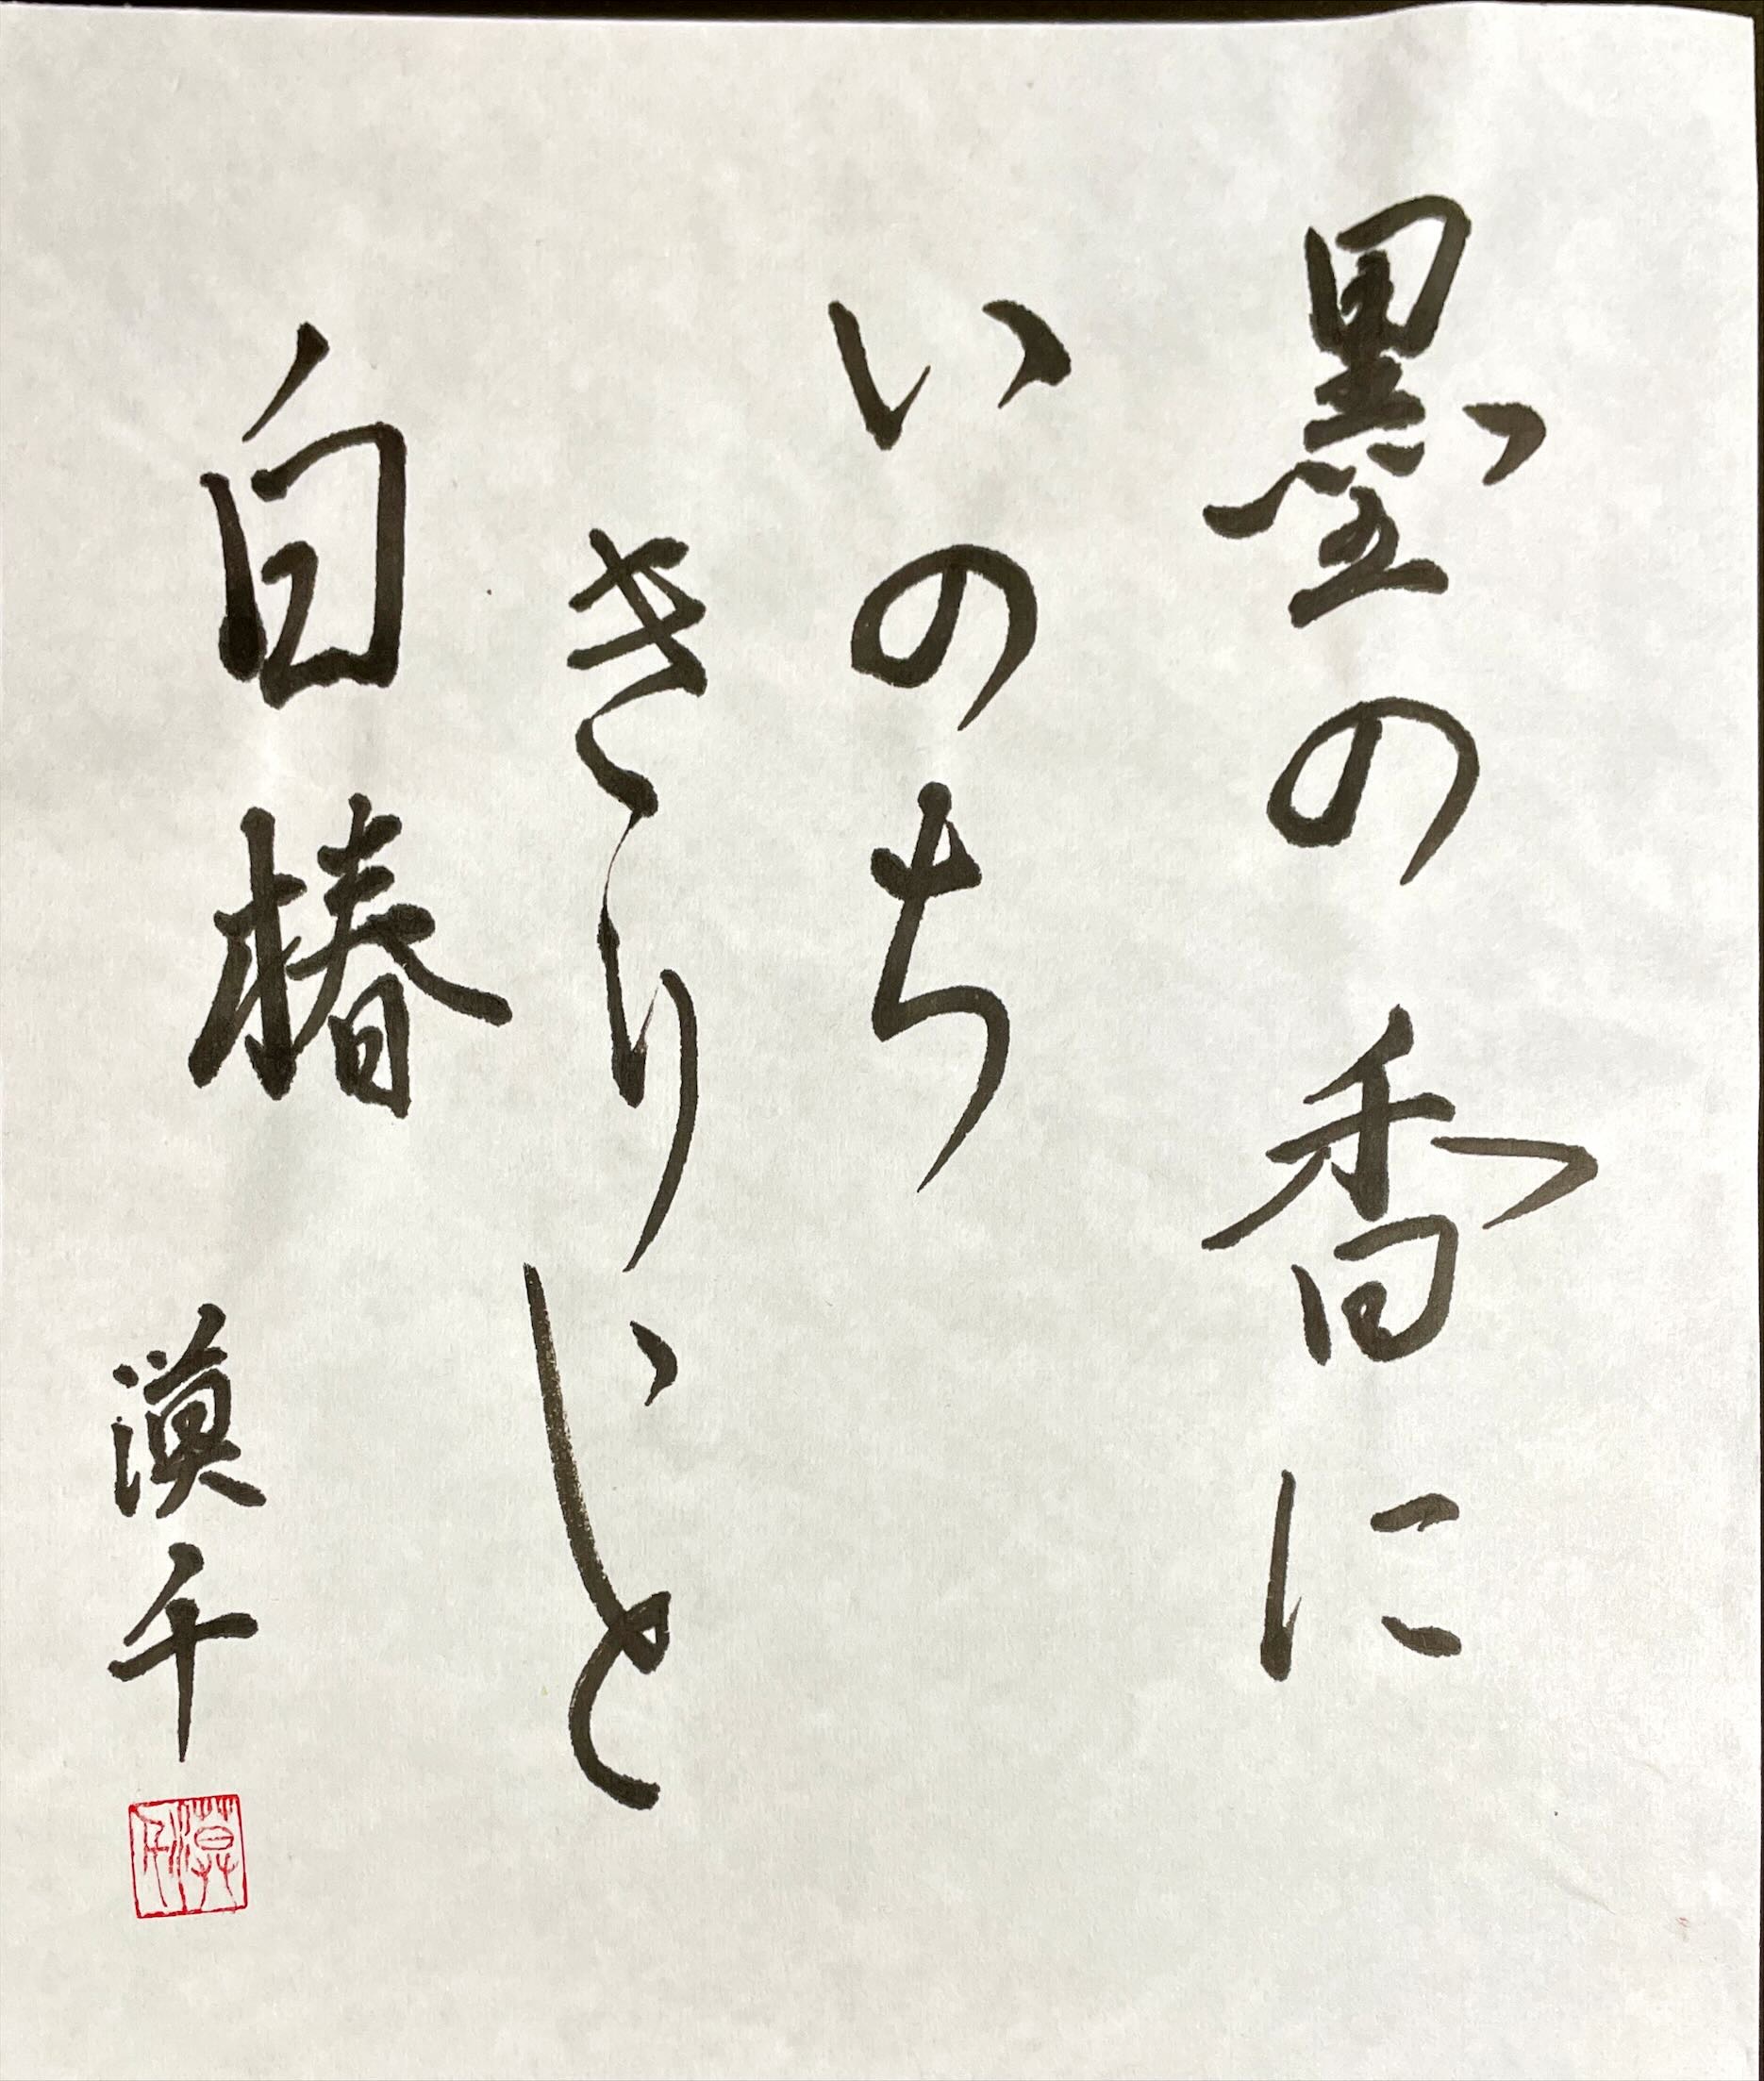 墨の香に
いのち
きりゝと
白椿
漠千
漠千